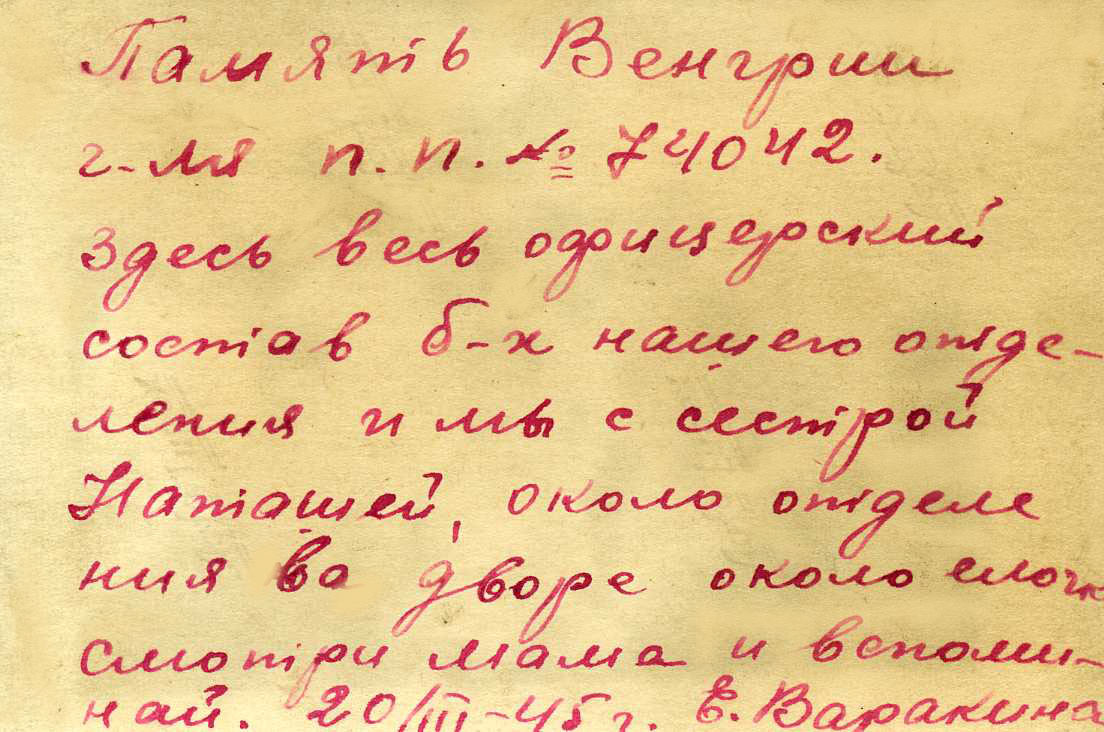 Память Венгрии
г-ля п.п. № 74042.
Здесь весь офицерский
состав б-х нашего отде-
ления и мы с сестрой
Наташей, около отделе
ния во дворе около елочк
смотри мама и вспоми-
най. 20/III-45 г. Е. Варакина